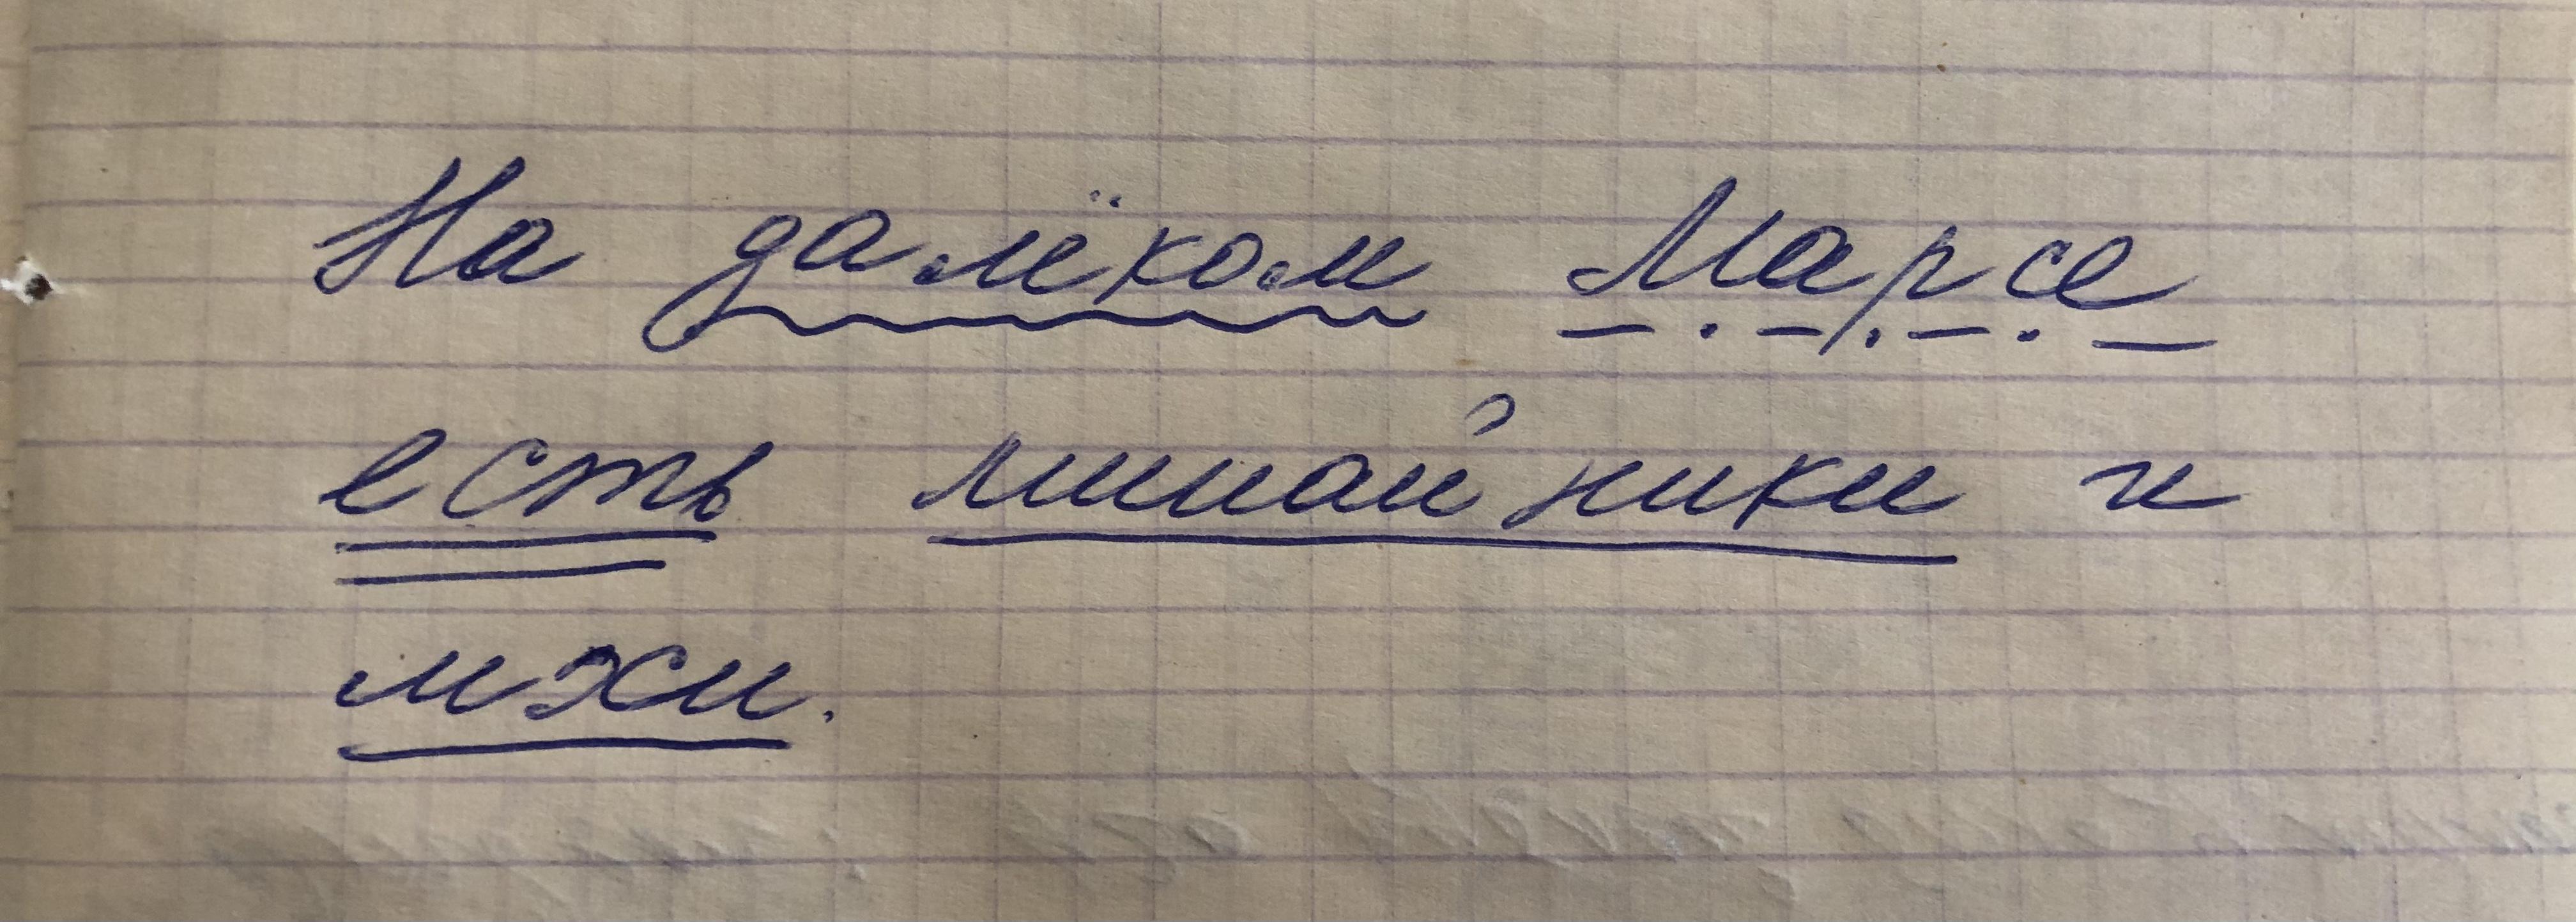 На далёком Марсе
есть лишайники и
мхи.